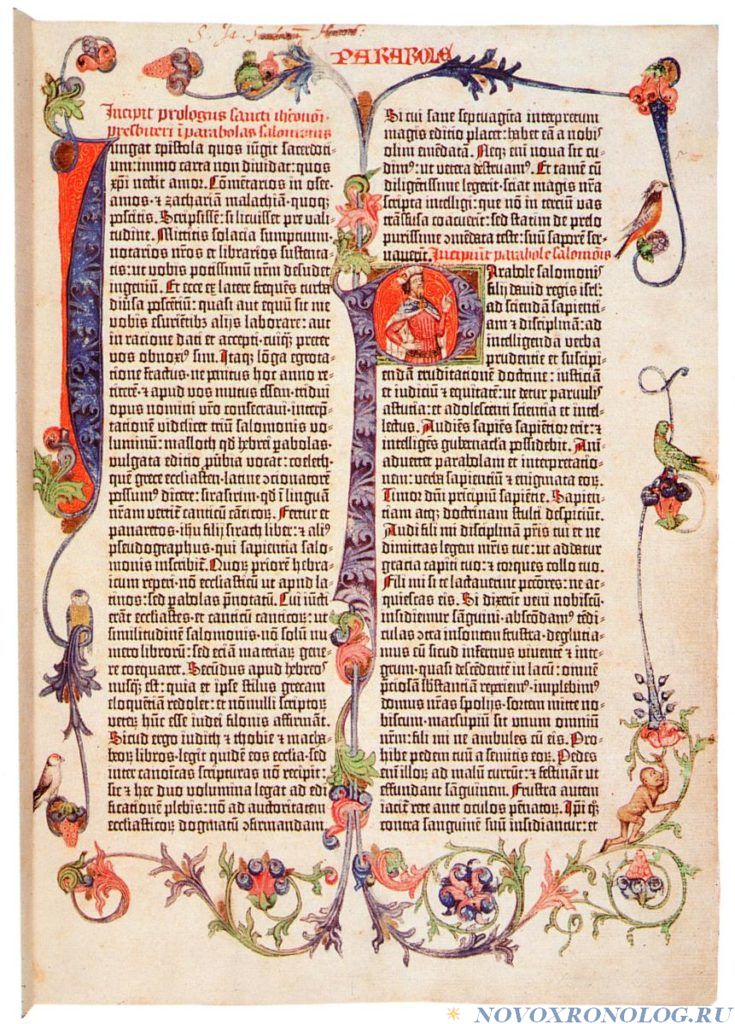 PARABOLE
Incipit prologus sancti iheronimi
presbiteri ī parabolas salomonis
Iungat epistola quos iūgit sacerdoti-
um: immo carta non dividat: quos
xpī nectit amor. Cōmētarios in osee
amos · & zachariam malachiā · quoq̄
poscitis. Scripsissē: si licuisset pre vali-
tudine. Mittitis solacia sumptuum ·
notarios nr̄os et librarios sustenta-
tis: ut vobis potissimū nr̄m desudet
ingeniū. Et ecce ex latere frequēs turba
diversa poscētiū: quasi aut equū sit me
vobis esurientibȝ alijs laborare: aut
in racione dati et accepti · cuiq̄ preter
vos obnoxiꝰ sim. Itaq̄ lōga egrota-
tione fractus · ne penitus hoc anno re-
ticerē · & apud vos mutus essem · tridui
opus nomini vr̄o consecravi · interp̄-
tationē videlicet triū salomonis vo-
luminū: masloth qd̄ hebrei p̄abolas ·
vulgata editio p̄verbia vocat: coeleth ·
quē grece ecclesiasten · latine ɔcionatorē
possumꝰ dicere: sirasirim · qd̄ ī linguā
nr̄am vertit̄ canticū cāticoꝝ. Fertur et
panaretos · ihu filij sirach liber: & aliꝰ
pseudographus · qui sapientia salo-
monis inscribit̄. Quoꝝ priorē hebra-
icum reperi · nō ecclesiasticū ut apud la-
tinos: sed p̄abolas p̄notatū. Cui iūcti
erāt ecclesiastes · et canticū canticoꝝ: ut
similitudinē salomonis · nō solū nu-
mero librorū: sed etiā materiaꝝ gene-
re coequaret. Secūdus apud hebreos
nusq̄ est: quia et ipse stilus grecam
eloquētiā redolet: et nōnulli scriptoꝝ
veteꝝ hūc esse iudei filonis affirmāt.
Sicud ergo iudith & thobie & macha-
beoꝝ libros · legit quidē eos ecclesia · sed
inter canonicas scripturas nō recipit:
sic & hec duo volumina legat ad edi-
ficationē plebis: nō ad auctoritatem
ecclesiasticoꝝ dogmatū ɔfirmandam.
Si cui sane septuagīta interpretum
magis editio placet: habet eā a nobis
olim emēdatā. Neq̄ em̄ nova sic cu-
dimꝰ: ut vetera destruamꝰ. Et tamē cū
diligētissime legerit · sciat magis nr̄a
scripta intelligi: que nō in terciū vas
trāsfusa coacuerīt: sed statim de prelo
purissime ɔmēdata teste: suū saporē ser-
vaverīt. Incipiūt parabole salomōis
Parabole salomonis
filij david regis isrl̄:
ad sciendā sapienti-
am & disciplinā: ad
intelligenda verba
prudentie et suscipi-
endā eruditationē doctrine: iusticiā
et iudiciū & equitatē: ut detur parvulis
astutia: et adolescenti scientia et intel-
lectus. Audiēs sapiēs sapiētior erit: &
intelligēs gubernacl̄a possidebit. Ani-
advertet parabolam et interpretatio-
nem: verba sapientiū & enigmata eoꝝ.
Timor dn̄i principiū sapiētie. Sapien-
tiam atq̄ doctrinam stulti despiciūt.
Audi fili mi disciplinā pr̄is tui et ne
dimittas legem mr̄is tue: ut addatur
gracia capiti tuo: & torques collo tuo.
Fili mi si te lactaverint pcc̄ores: ne ac-
quiescas eis. Si dixerīt veni nobiscū ·
insidiemur sāguini · abscōdamꝰ tēdi-
culas ɔtra insontem frustra · deglutia-
mus eū sicud infernus viventē & inte-
grum · quasi descēdentē in lacū: omnē
p̄ciosā sb̄stantiā reperiemꝰ · implebimꝰ
domus nr̄as spolijs · sortem mitte no-
biscum · marsupiū sit unum omniū
nr̄m: fili mi ne ambules cū eis. Pro-
hibe pedem tuū a semitis eoꝝ. Pedes
em̄ illoꝝ ad malū currūt: & festināt ut
effundant sāguinem. Frustra autem
iacit̄ rete ante oculos pēnatoꝝ. Ip̄i q̄ȝ
contra sanguinē suū insidiantur: et
NOVOXRONOLOG.RU